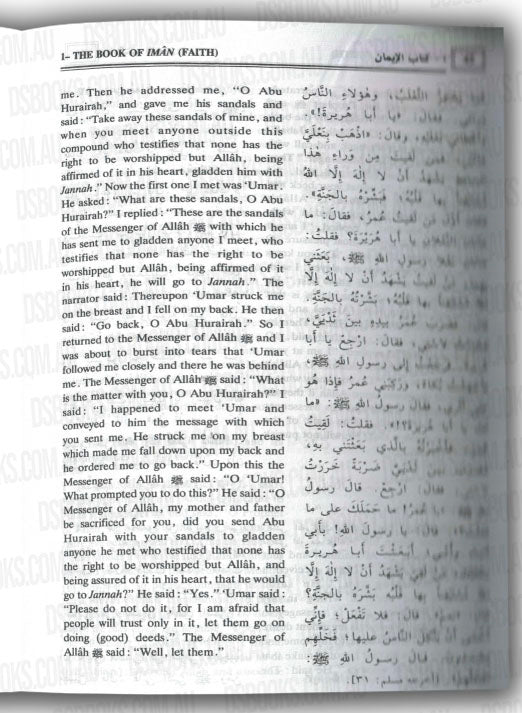 1– THE BOOK OF IMÂN (FAITH)
كتاب الإيمان
me. Then he addressed me, “O Abu
Hurairah,” and gave his sandals and
said : “Take away these sandals of mine, and
when you meet anyone outside this
compound who testifies that none has the
right to be worshipped but Allâh, being
affirmed of it in his heart, gladden him with
Jannah.” Now the first one I met was ‘Umar.
He asked : “What are these sandals, O Abu
Hurairah?” I replied : “These are the sandals
of the Messenger of Allâh ﷺ with which he
has sent me to gladden anyone I meet, who
testifies that none has the right to be
worshipped but Allâh, being affirmed of it
in his heart, he will go to Jannah.” The
narrator said : Thereupon ‘Umar struck me
on the breast and I fell on my back. He then
said : “Go back, O Abu Hurairah.” So I
returned to the Messenger of Allâh ﷺ and I
was about to burst into tears that ‘Umar
followed me closely and there he was behind
me. The Messenger of Allâh ﷺ said : “What
is the matter with you, O Abu Hurairah?” I
said : “I happened to meet ‘Umar and
conveyed to him the message with which
you sent me. He struck me on my breast
which made me fall down upon my back and
he ordered me to go back.” Upon this the
Messenger of Allâh ﷺ said : “O ‘Umar!
What prompted you to do this?” He said : “O
Messenger of Allâh, my mother and father
be sacrificed for you, did you send Abu
Hurairah with your sandals to gladden
anyone he met who testified that none has
the right to be worshipped but Allâh, and
being assured of it in his heart, that he would
go to Jannah?” He said : “Yes.” ‘Umar said :
“Please do not do it, for I am afraid that
people will trust only in it, let them go on
doing (good) deeds.” The Messenger of
Allâh ﷺ said : “Well, let them.”
الثَّعْلَبُ، وَهٰؤُلَاءِ النَّاسُ
«يَا أَبَا هُرَيْرَةَ!»
وَقَالَ: «اذْهَبْ بِنَعْلَيَّ
لَقِيتَ مِنْ وَرَاءِ هٰذَا
يَشْهَدُ أَنْ لَا إِلٰهَ إِلَّا اللهُ
بِهَا قَلْبُهُ، فَبَشِّرْهُ بِالْجَنَّةِ»
لَقِيتُ عُمَرُ، فَقَالَ: مَا
يَا أَبَا هُرَيْرَةَ؟ فَقُلْتُ:
رَسُولِ اللهِ ﷺ، بَعَثَنِي
يَشْهَدُ أَنْ لَا إِلٰهَ إِلَّا
بِهَا قَلْبُهُ، بَشَّرْتُهُ بِالْجَنَّةِ،
عُمَرُ بِيَدِهِ بَيْنَ ثَدْيَيَّ،
فَقَالَ: ارْجِعْ يَا أَبَا
إِلَى رَسُولِ اللهِ ﷺ،
وَرَكِبَنِي عُمَرُ فَإِذَا هُوَ
فَقَالَ رَسُولُ اللهِ ﷺ: «مَا
هُرَيْرَةَ؟!» فَقُلْتُ: لَقِيتُ
بِالَّذِي بَعَثْتَنِي بِهِ،
ضَرْبَةً خَرَرْتُ
ارْجِعْ. قَالَ رَسُولُ
عُمَرُ! مَا حَمَلَكَ عَلَى مَا
يَا رَسُولَ اللهِ! بِأَبِي
أَبَعَثْتَ أَبَا هُرَيْرَةَ
يَشْهَدُ أَنْ لَا إِلٰهَ إِلَّا
بِهَا قَلْبُهُ بَشَّرَهُ بِالْجَنَّةِ؟
قَالَ: فَلَا تَفْعَلْ؛ فَإِنِّي
يَتَّكِلَ النَّاسُ عَلَيْهَا؛ فَخَلِّهِمْ
قَالَ رَسُولُ اللهِ ﷺ:
مسلم: ٣١].
DSBOOKS.COM.AU